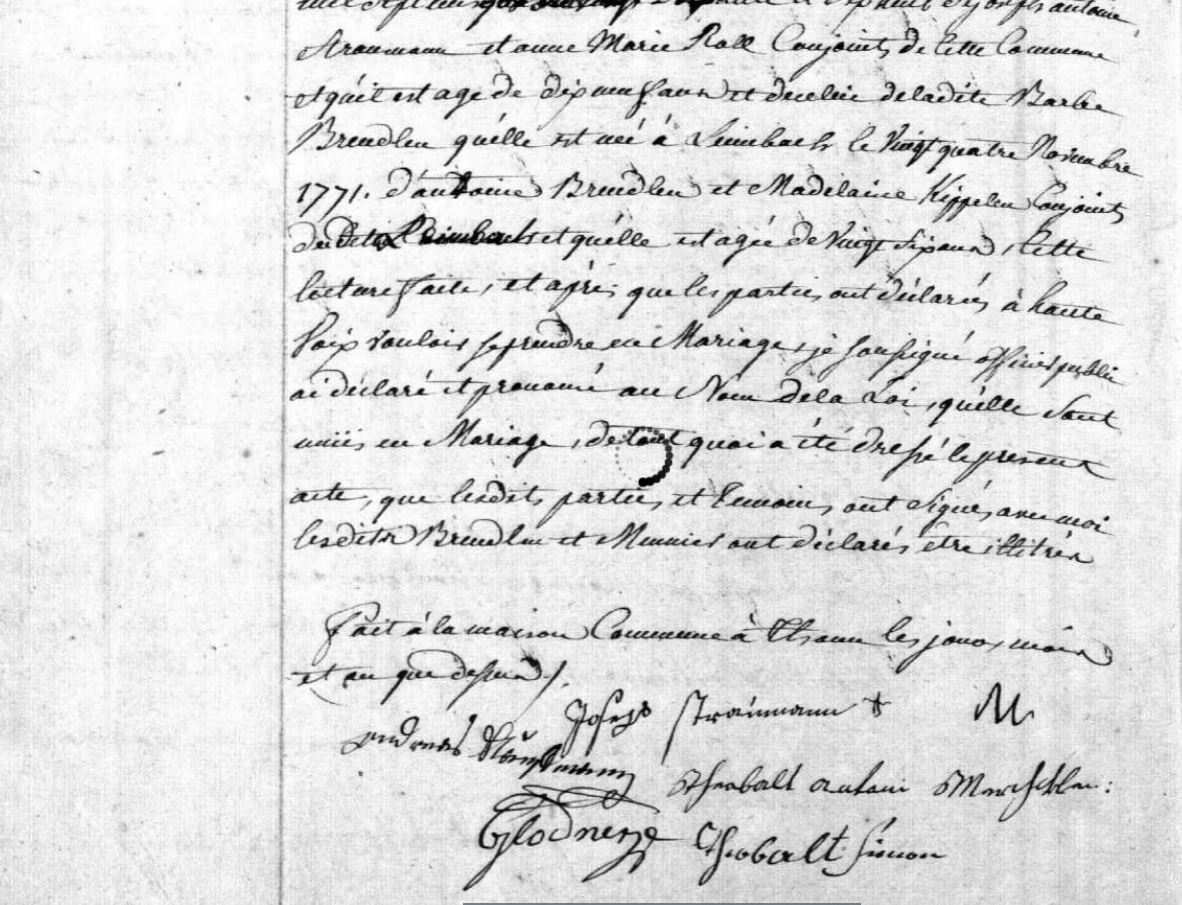 mil Sept cens quatre vingt antoine
Straumann et anne Marie Roll Conjoints de Cette Commune
et qu'il est agé de dix neuf ans et decelui de ladite Barbe
Brendlen qu'elle est née à Leimbach le Vingt quatre Novembre
1771. d'antoine Brendlen et Madelaine Kippelen Conjoints
dudit Leimbach et qu'elle est agée de Vingt Six ans, Cette
lecture faite, et après que les parties ont déclarés à haute
Voix vouloir se prendre en Mariage, je soussigné officier public
ai déclaré et prononcé au Nom de la Loi, qu'elle sont
unis en Mariage, de tout quoi a été dressé le present
acte, que lesdits parties et temoins ont signés avec moi
lesdits Brendlen et Meunier ont déclarés être illitrés
Fait à la maison Commune à Thann les jour mois
et an que dessus /.
Joseph Straumann + M
andreas
Theobalt antoni
Theobalt Simon